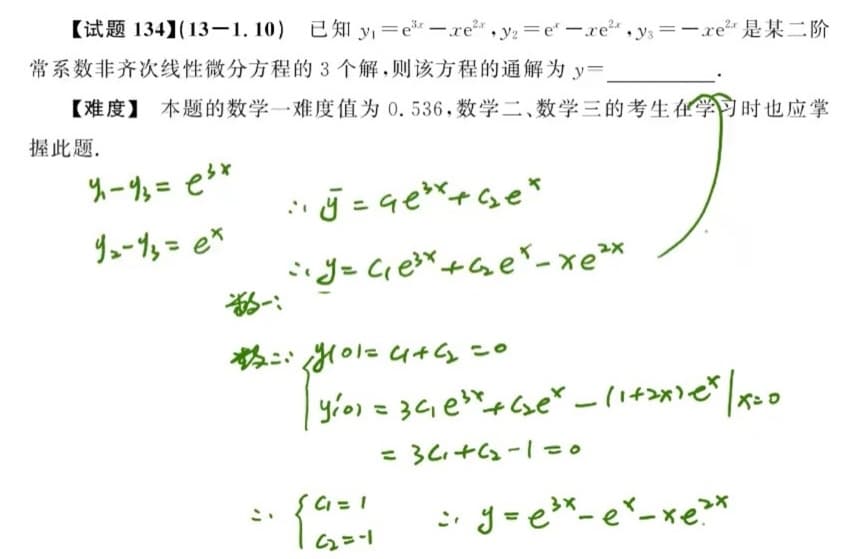 【试题 134】(13—1.10) 已知 y₁=e³ˣ-xe²ˣ,y₂=eˣ-xe²ˣ,y₃=-xe²ˣ是某二阶
常系数非齐次线性微分方程的 3 个解,则该方程的通解为 y=________.
【难度】 本题的数学一难度值为 0.536,数学二、数学三的考生在学习时也应掌
握此题.
y₁-y₃=e³ˣ
∴ ȳ=C₁e³ˣ+C₂eˣ
y₂-y₃=eˣ
∴ y=C₁e³ˣ+C₂eˣ-xe²ˣ
数一:
数二: { y(0)=C₁+C₂=0
y'(0)=3C₁e³ˣ+C₂eˣ-(1+2x)eˣ|x=0
=3C₁+C₂-1=0
∴ { C₁=1
C₂=-1
∴ y=e³ˣ-eˣ-xe²ˣ.